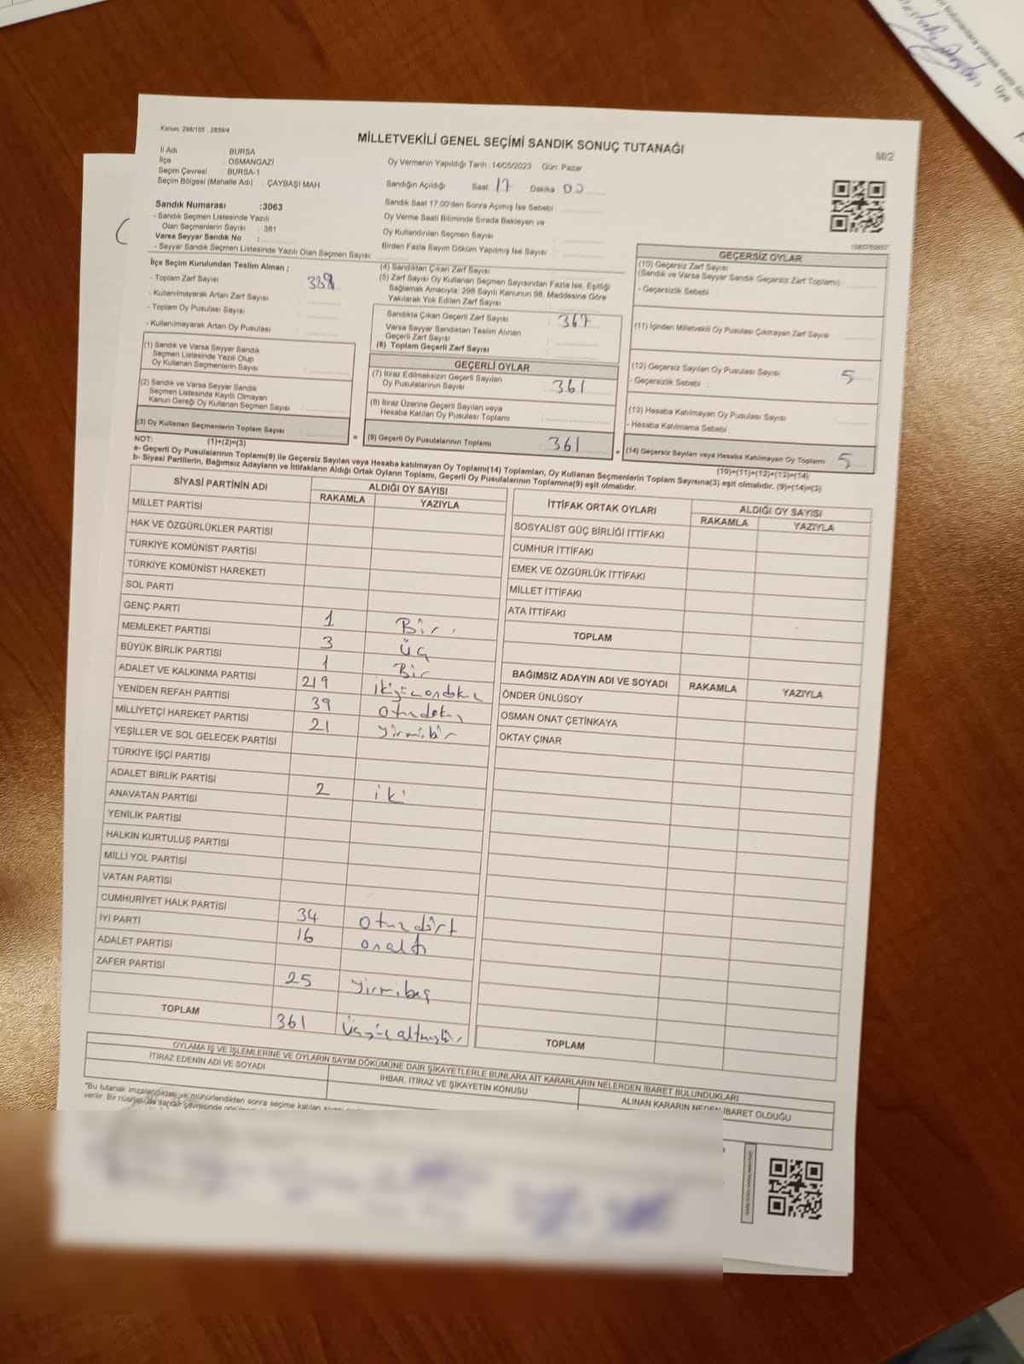 MİLLETVEKİLİ GENEL SEÇİMİ SANDIK SONUÇ TUTANAĞI
MI/2
İl Adı BURSA
İlçe OSMANGAZİ
Seçim Çevresi BURSA-1
Seçim Bölgesi (Mahalle Adı) : ÇAYBAŞI MAH
Oy Vermenin Yapıldığı Tarih :14/05/2023 Gün: Pazar
Sandığın Açıldığı Saat: 17 Dakika 00
Sandık Numarası :3063
- Sandık Seçmen Listesinde Yazılı
Olan Seçmenlerin Sayısı : 381
Varsa Seyyar Sandık No :
- Seyyar Sandık Seçmen Listesinde Yazılı Olan Seçmen Sayısı
Sandık Saat 17.00'den Sonra Açılmış İse Sebebi
Oy Verme Saati Bitiminde Sırada Bekleyen ve
Oy Kullandırılan Seçmen Sayısı
Birden Fazla Sayım Döküm Yapılmış İse Sayısı
İlçe Seçim Kurulundan Teslim Alınan ;
- Toplam Zarf Sayısı
- Kullanılmayarak Artan Zarf Sayısı
- Toplam Oy Pusulası
- Kullanılmayarak Artan Oy Pusulası
(1) Sandık ve Varsa Seyyar Sandık
Seçmen Listesinde Yazılı Olup
Oy Kullanan Seçmenlerin Sayısı
(2) Sandık ve Varsa Seyyar Sandık
Seçmen Listesinde Kayıtlı Olmayan
Kanun Gereği Oy Kullanan Seçmen Sayısı
(3) Oy Kullanan Seçmenlerin Toplam Sayısı
(1)+(2)=(3)
(4) Sandıktan Çıkan Zarf Sayısı
(5) Zarf Sayısı Oy Kullanan Seçmen Sayısından Fazla İse, Eşitliği
Sağlamak Amacıyla; 298 Sayılı Kanunun 98. Maddesine Göre
Yakılarak Yok Edilen Zarf Sayısı
Sandıkta Çıkan Geçerli Zarf Sayısı 367
Varsa Seyyar Sandıktan Teslim Alınan
Geçerli Zarf Sayısı
(6) Toplam Geçerli Zarf Sayısı
GEÇERLİ OYLAR
(7) İtiraz Edilmeksizin Geçerli Sayılan
Oy Pusulalarının Sayısı 361
(8) İtiraz Üzerine Geçerli Sayılan veya
Hesaba Katılan Oy Pusulası Toplamı
(9) Geçerli Oy Pusulalarının Toplamı 361
GEÇERSİZ OYLAR
(10) Geçersiz Zarf Sayısı
(Sandık ve Varsa Seyyar Sandık Geçersiz Zarf Toplamı)
- Geçersizlik Sebebi
(11) İçinden Milletvekili Oy Pusulası Çıkmayan Zarf Sayısı
(12) Geçersiz Sayılan Oy Pusulası Sayısı 5
- Geçersizlik Sebebi :
(13) Hesaba Katılmayan Oy Pusulası Sayısı
- Hesaba Katılmama Sebebi
(14) Geçersiz Sayılan veya Hesaba Katılmayan Oy Toplamı 5
(10)+(11)+(12)+(13)=(14)
NOT:
a- Geçerli Oy Pusulaları Toplamı(9) ile Geçersiz Sayılan veya Hesaba katılmayan Oy Toplamı(14) Toplamları, Oy Kullanan Seçmenlerin Toplam Sayısına(3) eşit olmalıdır. (9)+(14)=(3)
b- Siyasi Partilerin, Bağımsız Adayların ve İttifakların Aldığı Ortak Oyların Toplamı, Geçerli Oy Pusulalarının Toplamına(9) eşit olmalıdır.
SİYASİ PARTİNİN ADI ALDIĞI OY SAYISI
RAKAMLA YAZIYLA
MİLLET PARTİSİ
HAK VE ÖZGÜRLÜKLER PARTİSİ
TÜRKİYE KOMÜNİST PARTİSİ
TÜRKİYE KOMÜNİST HAREKETİ
SOL PARTİ
GENÇ PARTİ 1 Bir
MEMLEKET PARTİSİ 3 üç
BÜYÜK BİRLİK PARTİSİ 1 Bir
ADALET VE KALKINMA PARTİSİ 219 ikiyüzondokuz
YENİDEN REFAH PARTİSİ 39 otuzdokuz
MİLLİYETÇİ HAREKET PARTİSİ 21 yirmibir
YEŞİLLER VE SOL GELECEK PARTİSİ
TÜRKİYE İŞÇİ PARTİSİ
ADALET BİRLİK PARTİSİ 2 iki
ANAVATAN PARTİSİ
YENİLİK PARTİSİ
HALKIN KURTULUŞ PARTİSİ
MİLLİ YOL PARTİSİ
VATAN PARTİSİ
CUMHURİYET HALK PARTİSİ 34 otuzdört
İYİ PARTİ 16 onaltı
ADALET PARTİSİ
ZAFER PARTİSİ 25 yirmibeş
TOPLAM 361 üçyüzaltmışbir
İTTİFAK ORTAK OYLARI ALDIĞI OY SAYISI
RAKAMLA YAZIYLA
SOSYALİST GÜÇ BİRLİĞİ İTTİFAKI
CUMHUR İTTİFAKI
EMEK VE ÖZGÜRLÜK İTTİFAKI
MİLLET İTTİFAKI
ATA İTTİFAKI
TOPLAM
BAĞIMSIZ ADAYIN ADI VE SOYADI RAKAMLA YAZIYLA
ÖNDER ÜNLÜSOY
OSMAN ONAT ÇETİNKAYA
OKTAY ÇINAR
TOPLAM
OYLAMA İŞ VE İŞLEMLERİNE VE OYLARIN SAYIM DÖKÜMÜNE DAİR ŞİKAYETLERLE BUNLARA AİT KARARLARIN NELERDEN İBARET BULUNDUKLARI
İTİRAZ EDENİN ADI VE SOYADI
İHBAR, İTİRAZ VE ŞİKAYETİN KONUSU
ALINAN KARARIN NEDEN İBARET OLDUĞU